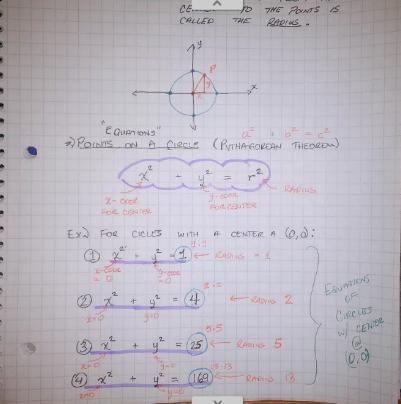 TO THE POINTS IS
CALLED THE RADIUS.
y
P
x
y
x
"EQUATIONS"
a² + b² = c²
POINTS ON A CIRCLE (PYTHAGOREAN THEOREM)
x² + y² = r²
RADIUS
X-COOR
FOR CENTER
Y-COOR
FOR CENTER
Ex) FOR CIRCLES WITH A CENTER A (0,0):
1·1
① x² + y² = 1 ← RADIUS = 1
X-COOR
= 0
Y-COOR
= 0
2·2
② x² + y² = 4 ← RADIUS 2
x=0
y=0
5·5
③ x² + y² = 25 ← RADIUS 5
x=0
y=0
13·13
④ x² + y² = 169 ← RADIUS 13
x=0
y=0
EQUATIONS
OF
CIRCLES
W/ CENTER
@
(0,0)